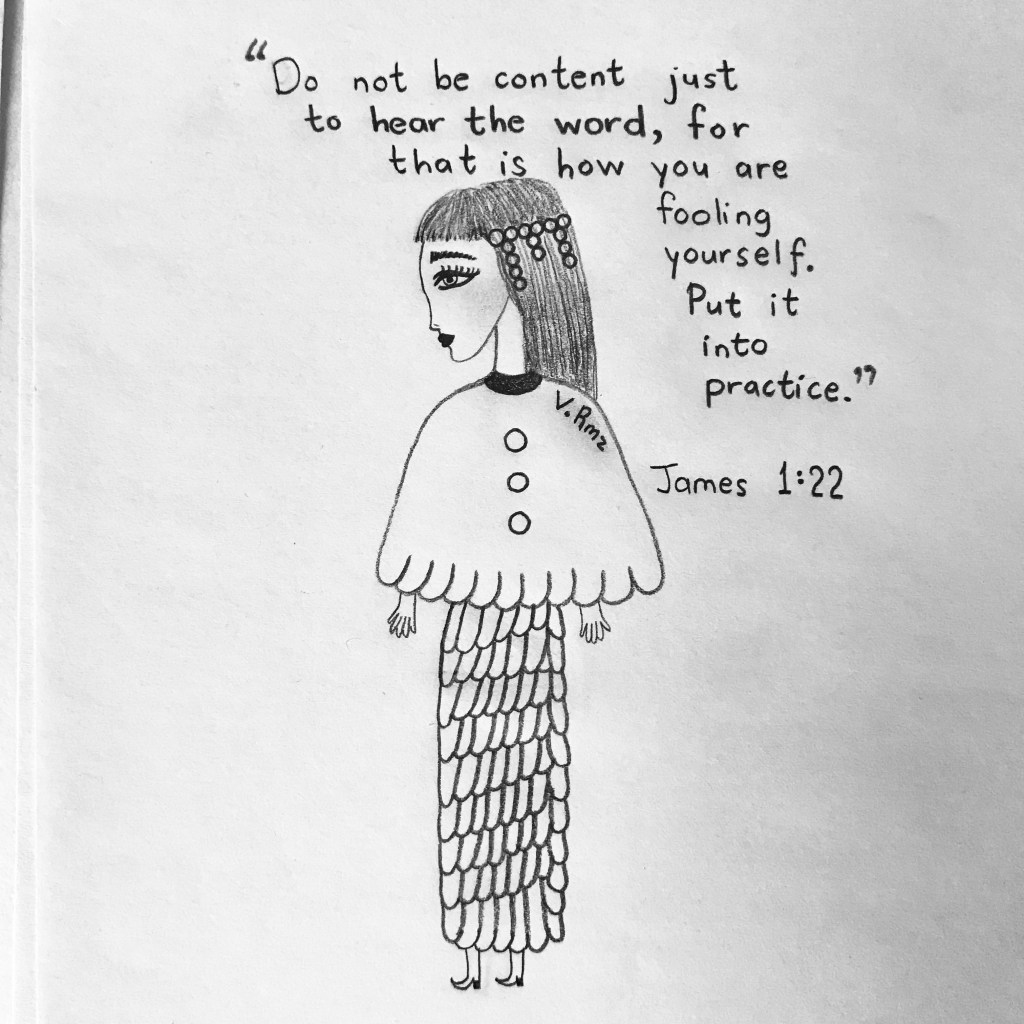 “Do not be content just
to hear the word, for
that is how you are
fooling
yourself.
Put it
into
practice.”
V. Rmz
James 1:22